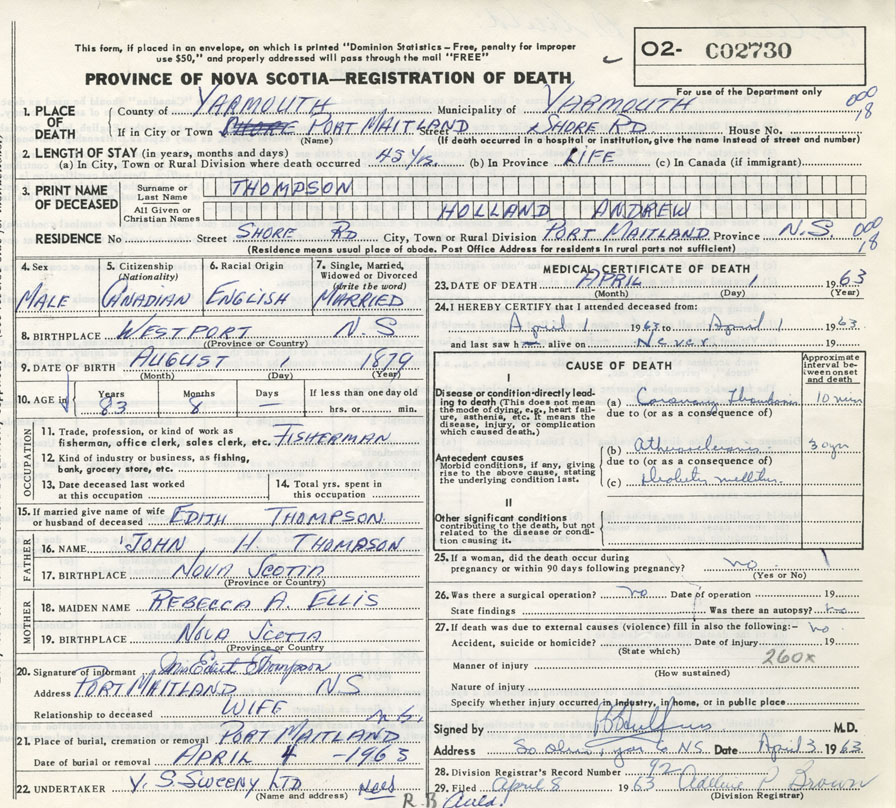 This form, if placed in an envelope, on which is printed "Dominion Statistics - Free, penalty for improper
use $50," and properly addressed will pass through the mail "FREE"
O2- C02730
For use of the Department only
PROVINCE OF NOVA SCOTIA—REGISTRATION OF DEATH
1. PLACE OF DEATH
County of YARMOUTH Municipality of YARMOUTH
If in City or Town PORT MAITLAND Street SHORE RD House No.
(Name) (If death occurred in a hospital or institution, give the name instead of street and number)
000
18
2. LENGTH OF STAY (in years, months and days)
(a) In City, Town or Rural Division where death occurred 45 Yrs. (b) In Province LIFE (c) In Canada (if immigrant)
3. PRINT NAME OF DECEASED
Surname or Last Name THOMPSON
All Given or Christian Names HOLLAND ANDREW
RESIDENCE No Street SHORE RD City, Town or Rural Division PORT MAITLAND Province N.S.
(Residence means usual place of abode. Post Office Address for residents in rural parts not sufficient)
000
18
4. Sex MALE
5. Citizenship (Nationality) CANADIAN
6. Racial Origin ENGLISH
7. Single, Married, Widowed or Divorced (Write the word) MARRIED
8. BIRTHPLACE WESTPORT N.S
(Province or Country)
9. DATE OF BIRTH AUGUST 1 1879
(Month) (Day) (Year)
10. AGE in Years 83 Months 8 Days — If less than one day old hrs. or min.
OCCUPATION
11. Trade, profession or kind of work as fisherman, office clerk, sales clerk, etc. FISHERMAN
12. Kind of industry or business, as fishing, bank, grocery store, etc.
13. Date deceased last worked at this occupation
14. Total yrs. spent in this occupation
15. If married give name of wife or husband of deceased EDITH THOMPSON
FATHER
16. NAME JOHN H. THOMPSON
17. BIRTHPLACE NOVA SCOTIA
(Province or Country)
MOTHER
18. MAIDEN NAME REBECCA A. ELLIS
19. BIRTHPLACE NOVA SCOTIA
(Province or Country
20. Signature of informant Mrs Edith Thompson
Address PORT MAITLAND NS
Relationship to deceased WIFE
n.s.
21. Place of burial, cremation or removal PORT MAITLAND
Date of burial or removal APRIL 4 -1963
22. UNDERTAKER V. S. SWEENY LTD
(Name and address)
MEDICAL CERTIFICATE OF DEATH
23. DATE OF DEATH APRIL 1 1963
(Month) (Day) (Year)
24. I HEREBY CERTIFY that I attended deceased from:
April 1 1963 to April 1 1963
and last saw h alive on Never 19
CAUSE OF DEATH
Approximate interval between onset and death
I
Disease or condition directly leading to death (This does not mean the mode of dying, e.g., heart failure, asthenia, etc. It means the disease, injury, or complication which caused death.)
(a) Coronary Thrombosis 10 min
due to (or as a consequence of)
Antecedent causes
Morbid conditions, if any, giving rise to the above cause, stating the underlying condition last.
(b) 3 yrs
due to (or as a consequence of)
(c) Diabetes mellitus
II
Other significant conditions
contributing to the death, but not related to the disease or condition causing it.
25. If a woman, did the death occur during
pregnancy or within 90 days following pregnancy? no
(Yes or No)
26. Was there a surgical operation? no Date of operation 19
State findings Was there an autopsy? no
27. If death was due to external causes (violence) fill in also the following:- no
Accident, suicide or homicide? Date of injury 19
(State which)
260x
Manner of injury
(How sustained)
Nature of injury
Specify whether injury occurred in industry, in home, or in public place
Signed by M.D.
Address So Ohio, Yar Co NS Date April 3 1963
28. Division Registrar's Record Number 92
29. Filed April 8 1963 Adeline P Brown
(Division Registrar)